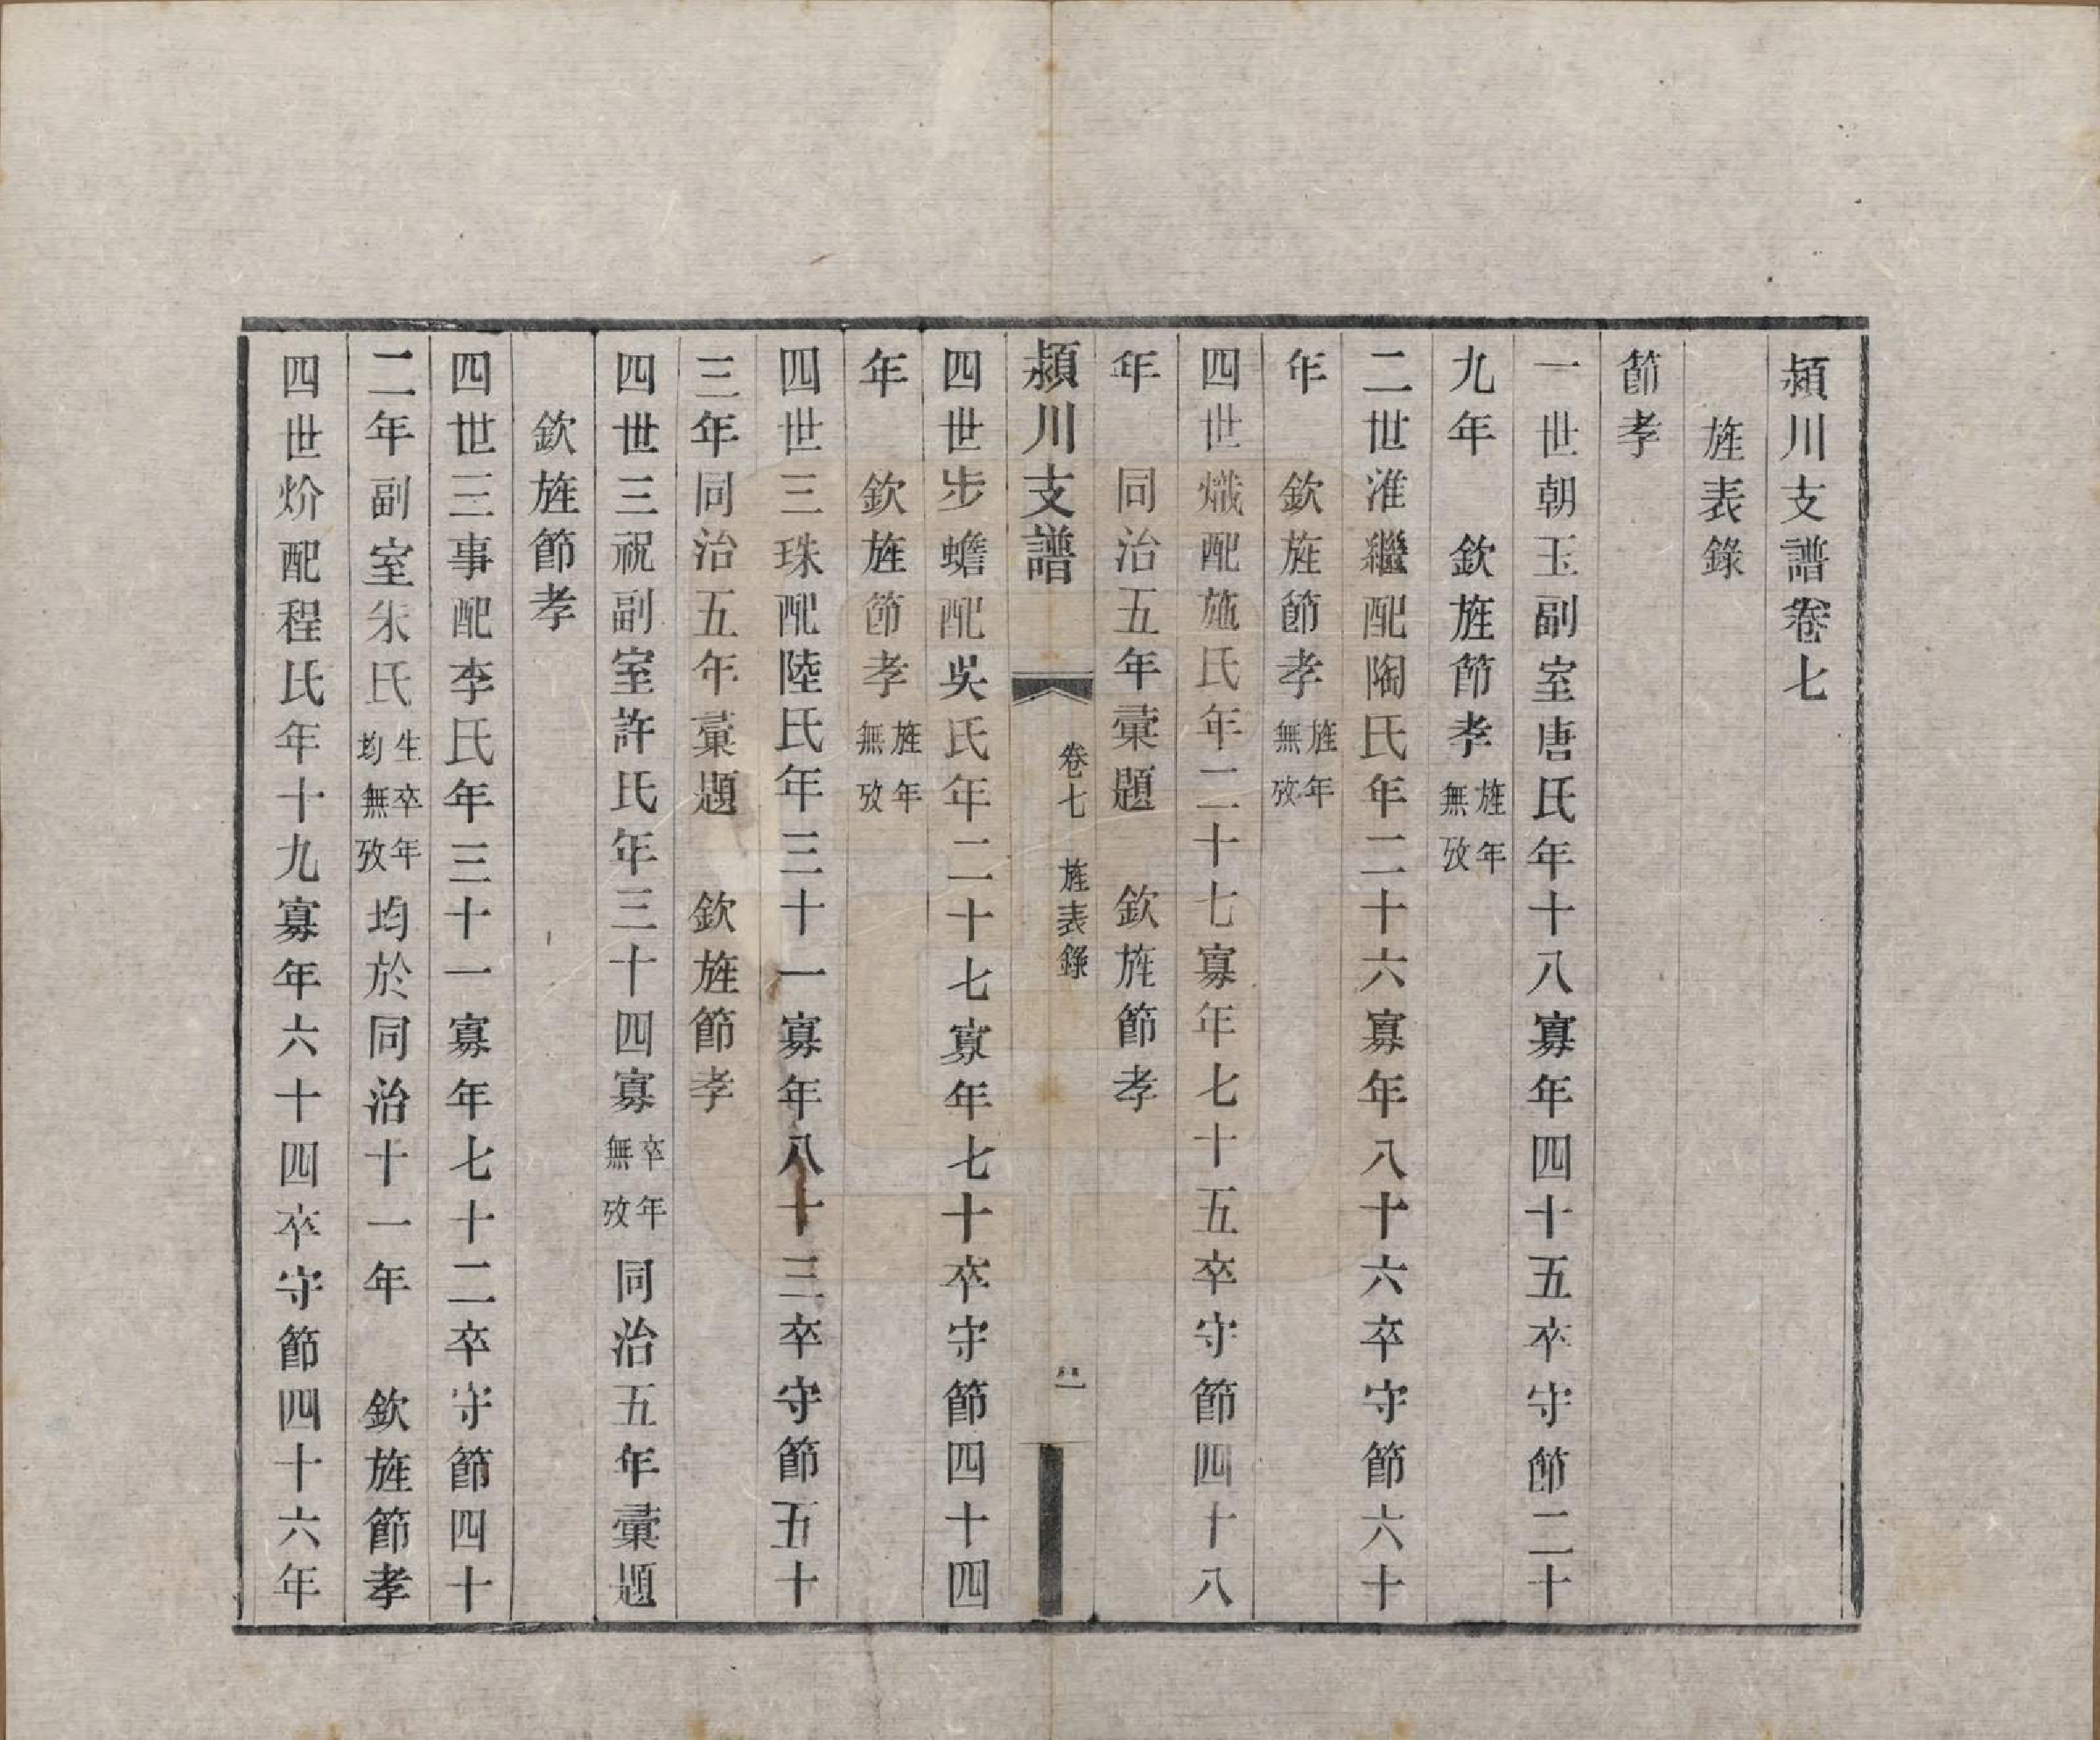 潁川支譜卷七
旌表錄
節孝
一世朝玉副室唐氏年十八寡年四十五卒守節二十
九年　欽旌節孝旌年無攷
二世準繼配陶氏年二十六寡年八十六卒守節六十
年　欽旌節孝旌年無攷
四世熾配施氏年二十七寡年七十五卒守節四十八
年　同治五年彙題　欽旌節孝
潁川支譜　卷七　旌表錄
四世步蟾配吳氏年二十七寡年七十卒守節四十四
年　欽旌節孝旌年無攷
四世三珠配陸氏年三十一寡年八十三卒守節五十
三年同治五年彙題　欽旌節孝
四世三祝副室許氏年三十四寡卒年無攷同治五年彙題
欽旌節孝
四世三事配李氏年三十一寡年七十二卒守節四十
二年副室朱氏生卒年均無攷均於同治十一年　欽旌節孝
四世炌配程氏年十九寡年六十四卒守節四十六年